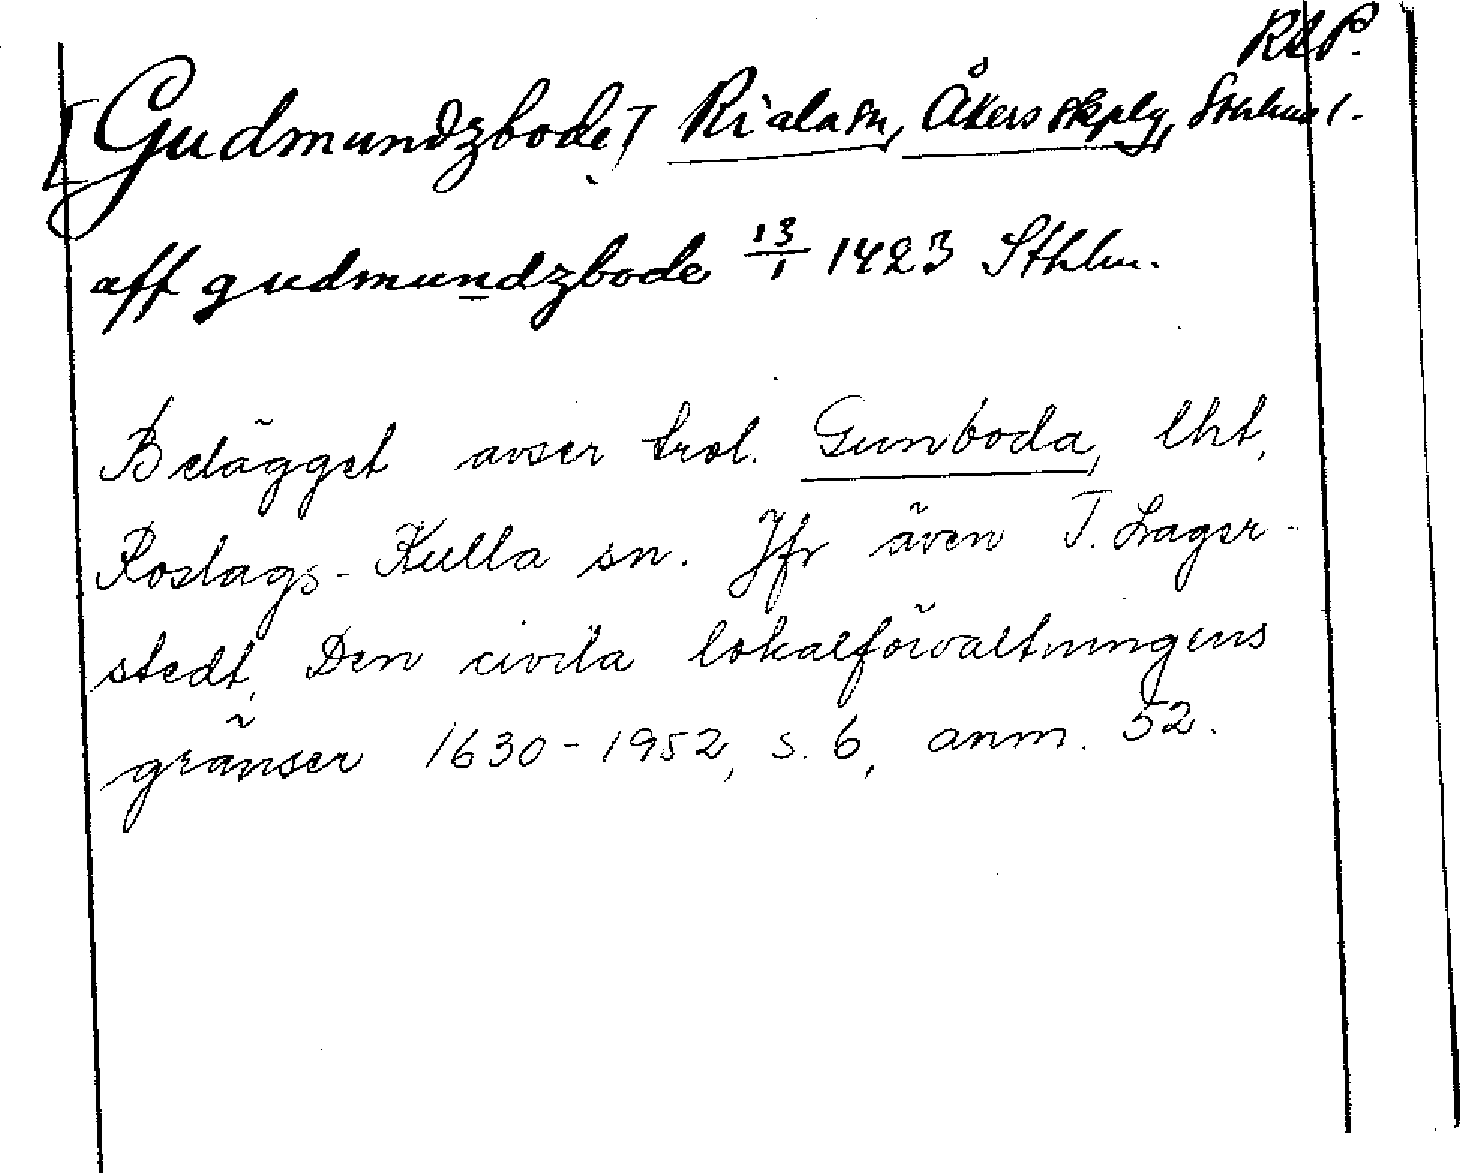 RAP.
[Gudmundzbode] Riala sn, Åkers skplg, Sthlms l.
aff gudmundzbode 13/1 1423 Sthlm.
Belägget avser trol. Gunboda, lht,
Roslags-Kulla sn. Jfr även T. Lager-
stedt, Den civila lokalförvaltningens
gränser 1630-1952, s. 6, anm. 52.